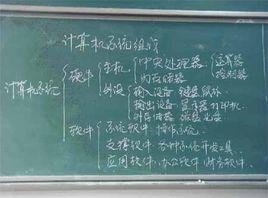 计算机系统组成
计算机系统
硬件
主机
中央处理器
运算器
控制器
内存储器
外设
输入设备 键盘 鼠标
输出设备 显示器 打印机
外存储器 磁盘 光盘
软件
系统软件 操作系统
支撑软件 各种系统开发工具
应用软件 办公软件 财务软件